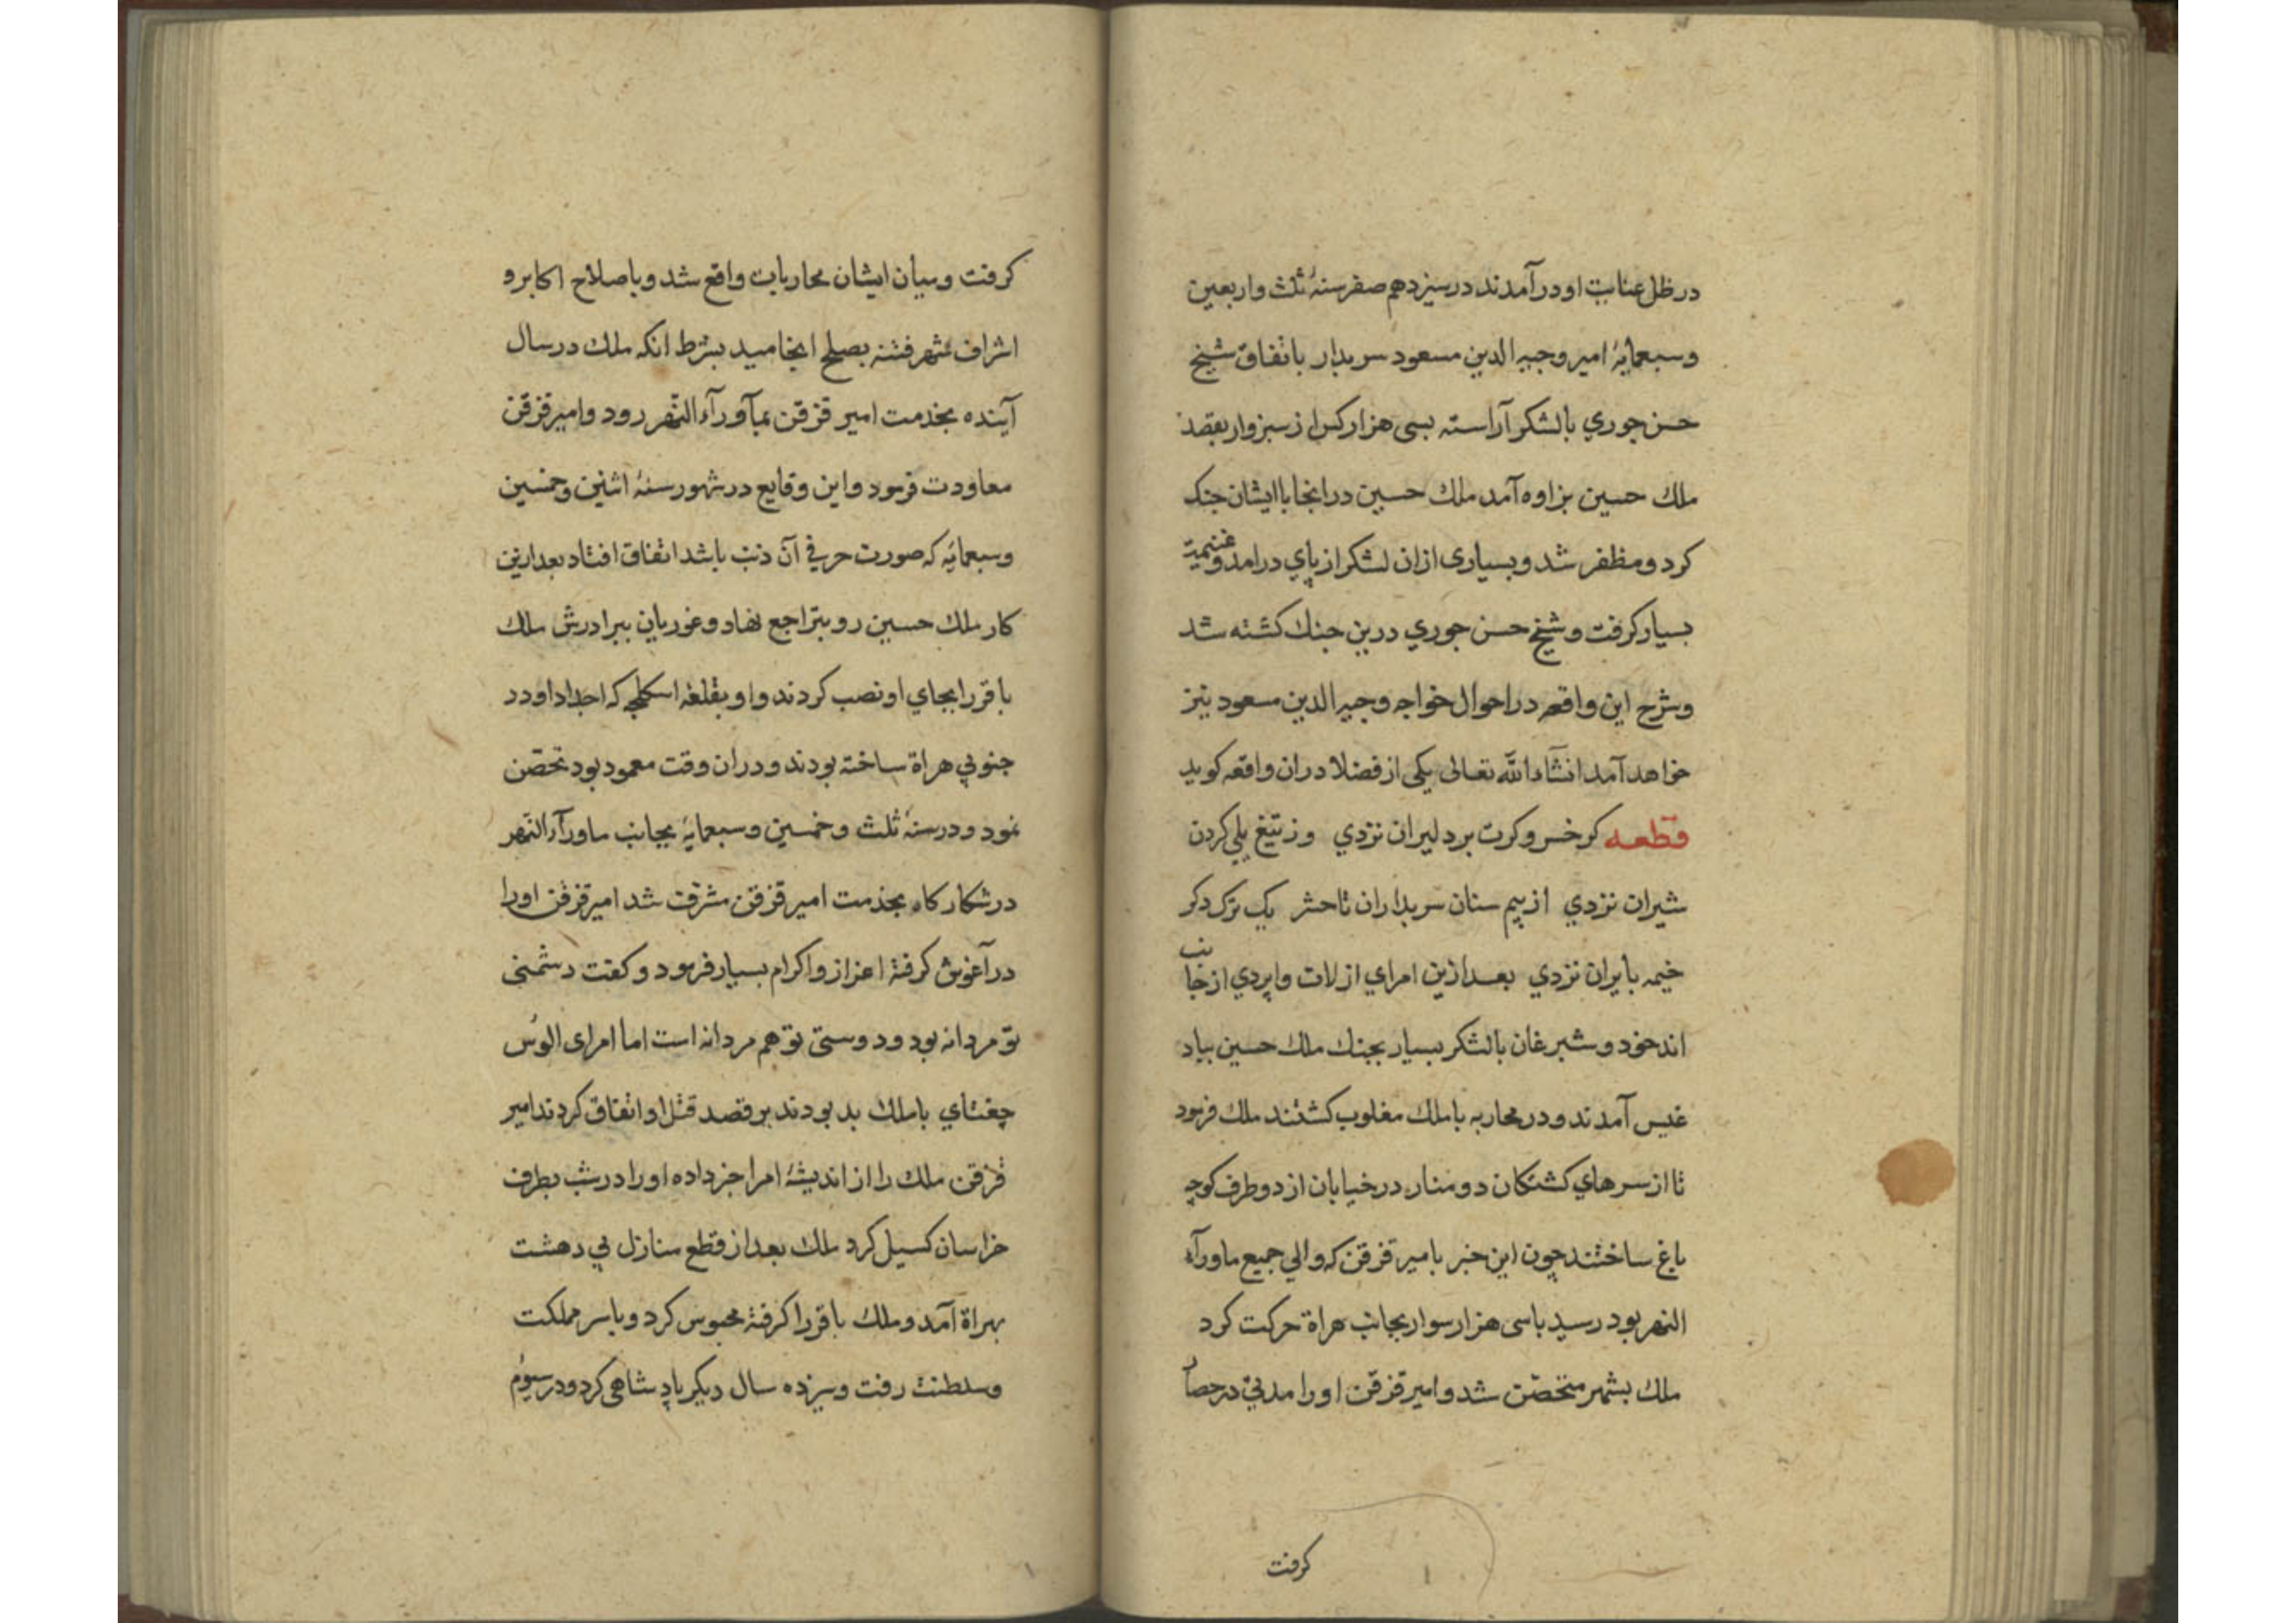 در ظل عنایت او درآمدند در سیزدهم صفر سنهٔ ثلث و اربعین
و سبعمایهٔ امیر وجیه الدین مسعود سربدار باتفاق شیخ
حسن جوري با لشکر آراسته بسی هزار کس از سبزوار بقصد
ملك حسین بزاوه آمد ملك حسین در انجا با ایشان جنك
کرد و مظفر شد و بسیاری از ان لشکر از پاي درامد و غنیمة
بسیار کرفت و شیخ حسن جوري درین جنك کشته شد
و شرح این واقعه در احوال خواجه وجیه الدین مسعود نیز
خواهد آمد انشآء الله تعالی یکی از فضلا دران واقعه کوید
قطعه کر خسرو کرت بر دلیران نزدي وز تیغ یلی کردن
شیران نزدي از بیم سنان سربداران تا حشر یک ترک دکر
خیمه بایران نزدي بعد ازین امراي ارلات و اپردي از جانب
اندخود و شبرغان با لشکر بسیار بجنك ملك حسین بباد
غیس آمدند و در محاربه با ملك مغلوب کشتند ملك فرمود
تا از سرهاي کشتکان دو منار در خیابان از دو طرف کوچه
باغ ساختند چون این خبر بامیر قزقن که والي جمیع ماورآء
النهر بود رسید با سی هزار سوار بجانب هراة حرکت کرد
ملك بشهر متحصّن شد و امیر قزقن او را مدتي در حصار
کرفت
کرفت و میان ایشان محاربات واقع شد و باصلاح اکابر و
اشراف شهر فتنه بصلح انجامید بشرط انکه ملك در سال
آینده بخدمت امیر قزقن بمآورآء النّهر رود و امیر قزقن
معاودت فرمود و این وقایع در شهور سنهٔ اثنین و خمسین
و سبعمایٔه که صورت حرفي آن ذنب باشد اتفاق افتاد بعد ازین
کار ملك حسین رو بتراجع نهاد و غوریان ببرادرش ملك
باقر را بجاي او نصب کردند و او بقلعهٔ اسکلجه که اجداد او در
جنوبي هراة ساخته بودند و دران وقت معمور بود تحصّن
نمود و در سنهٔ ثلث و خمسین و سبعمایهٔ بجانب ماورآء النّهر
در شکارکاه بخدمت امیر قزقن مشرّف شد امیر قزقن او را
در آغوش کرفته اعزاز و اکرام بسیار فرمود و کفت دشمنی
تو مردانه بود و دوستی تو هم مردانه است اما امرای الوُس
چغتاي با ملك بد بودند بر قصد قتل او اتفاق کردند امیر
قزقن ملك را از اندیشهٔ امرا خبر داده او را در شب بطرف
خراسان کسیل کرد ملك بعد از قطع منازل بي دهشت
بهراة آمد و ملك باقر را کرفته محبوس کرد و با سر مملکت
و سلطنت رفت و سیزده سال دیکر پادشاهی کرد و در سیوُم